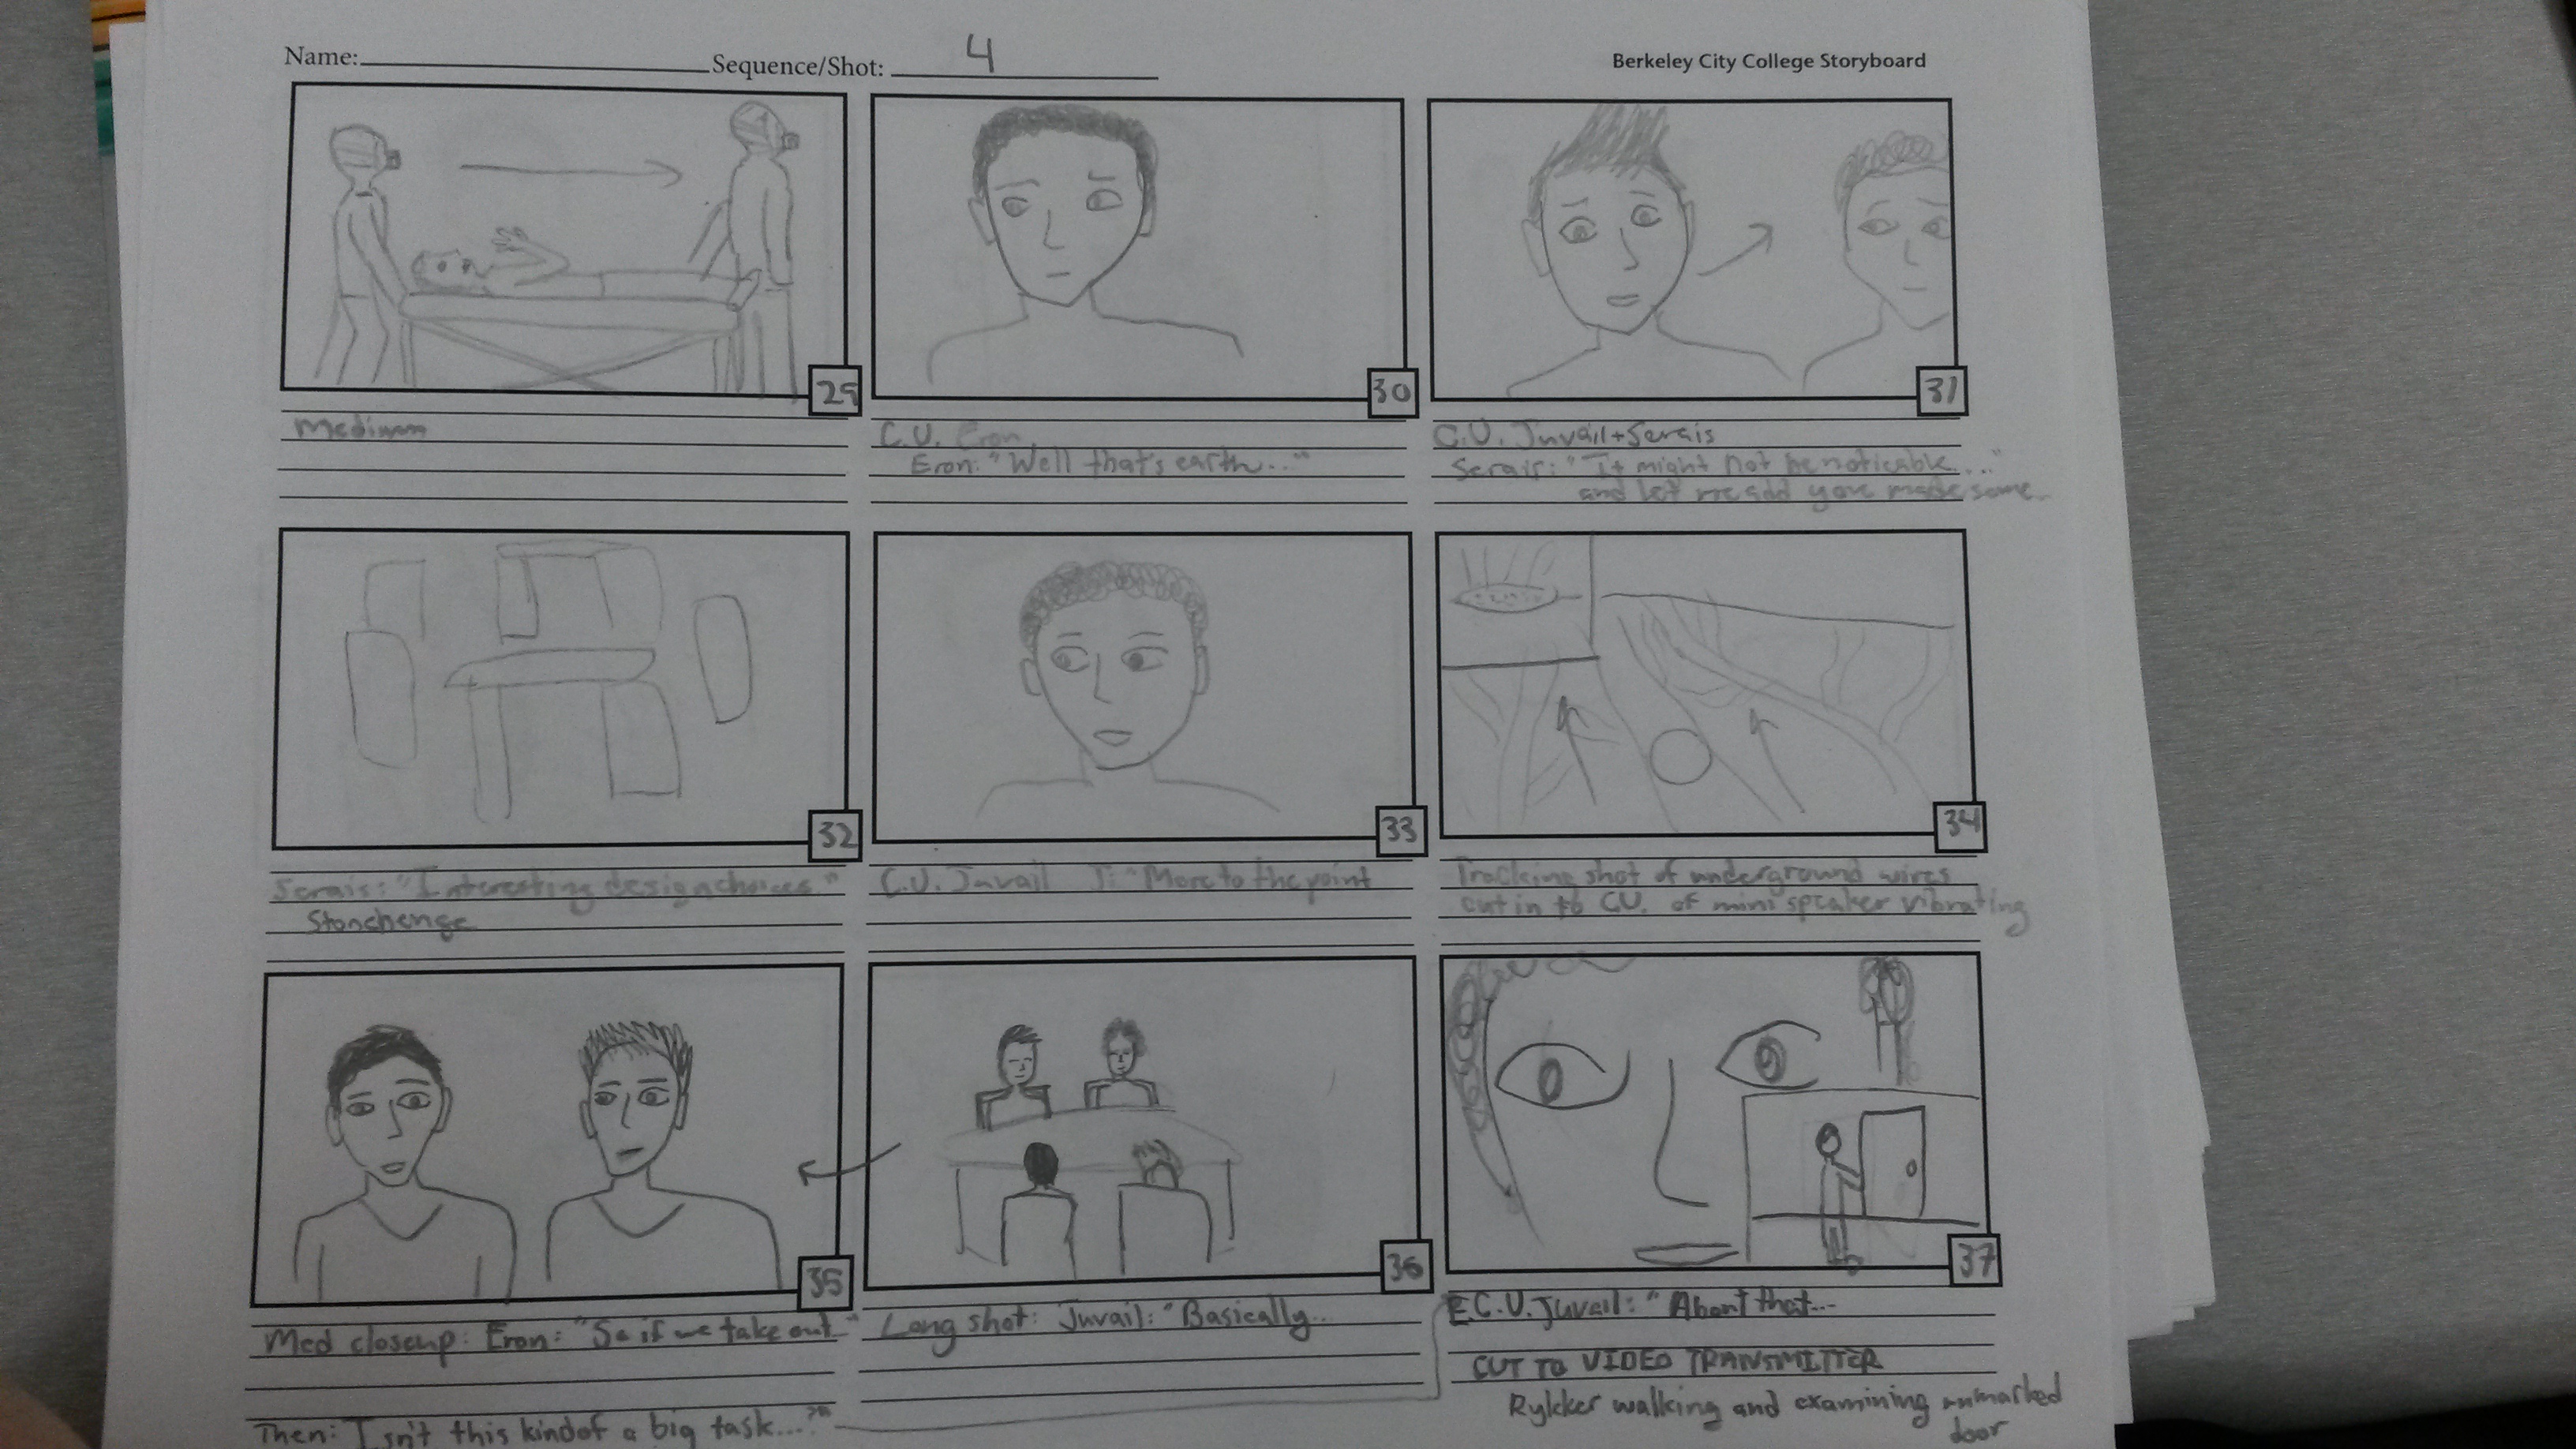 Name: Sequence/Shot: 4 Berkeley City College Storyboard
29
30
31
Medium
C.U. Eron
Eron: "Well that's earth..."
C.U. Juvail + Serais
Serais: "It might not be noticable...."
and let me add youve made some
32
33
34
Serais: "Interesting design choices"
Stonehenge
C.U. Juvail J: "More to the point
Tracking shot of underground wires
cut in to C.U. of mini speaker vibrating
35
36
37
Med closeup: Eron: "So if we take out..."
Then: Isn't this kindof a big task....?"
Long shot: Juvail: "Basically...
E.C.U. Juvail: "About that...
CUT TO VIDEO TRANSMITTER
Rykker walking and examining unmarked
door